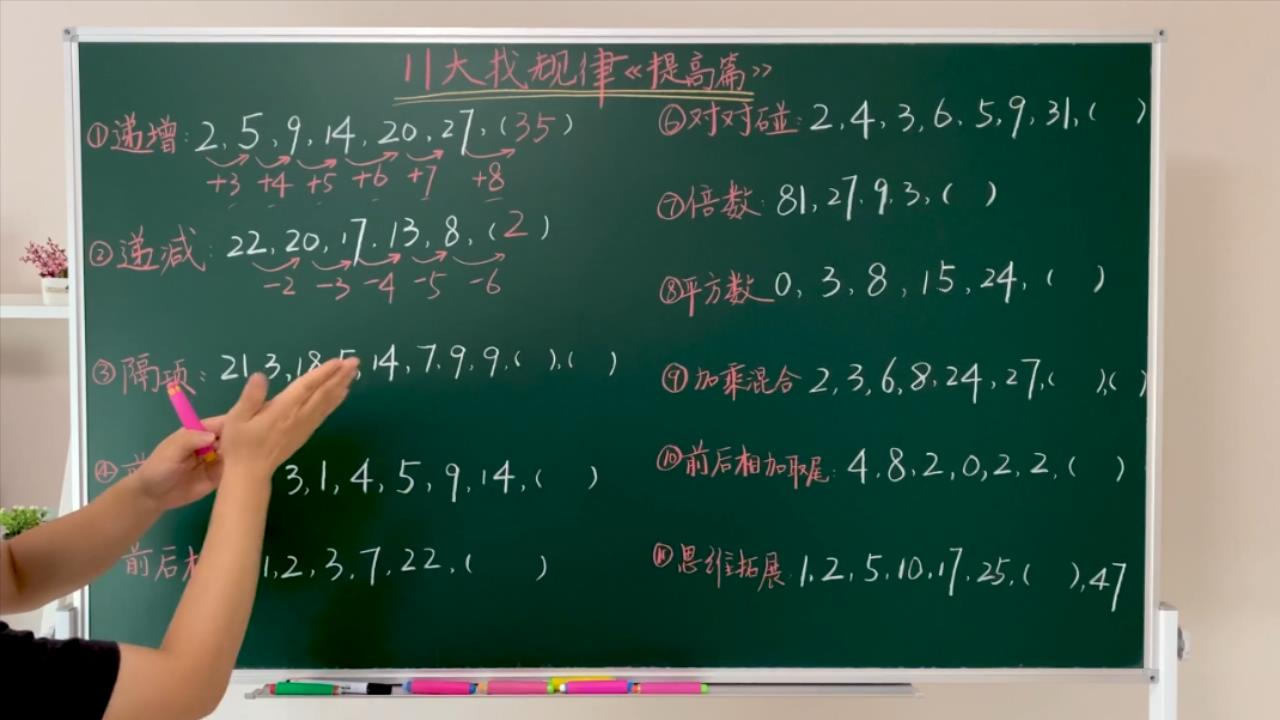 11大找规律《提高篇》
①递增：2，5，9，14，20，27，（35）
+3 +4 +5 +6 +7 +8
②递减：22，20，17，13，8，（2）
-2 -3 -4 -5 -6
③隔项：21，3，18，5，14，7，9，9，（ ），（ ）
④前 3，1，4，5，9，14，（ ）
前后相 1，2，3，7，22，（ ）
⑥对对碰：2，4，3，6，5，9，31，（ ）
⑦倍数：81，27，9，3，（ ）
⑧平方数 0，3，8，15，24，（ ）
⑨加乘混合 2，3，6，8，24，27，（ ），（ ）
⑩前后相加取尾：4，8，2，0，2，2，（ ）
⑪思维拓展：1，2，5，10，17，25，（ ），47